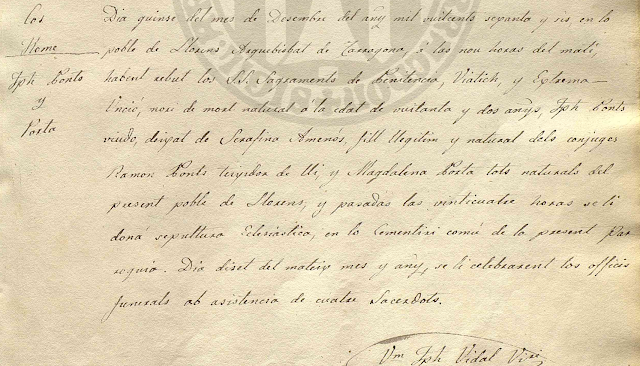 Cos
Home
Jph Ponts
y
Porta
Dia quinse del mes de Desembre del any mil vuitcents sepanta y sis en lo
poble de Llorens Arquebisbat de Tarragona, á las nou horas del matí,
habent rebut los SS. Sagraments de Penitencia, Viatich, y Extrema-
Unció, morí de mort natural á la edat de vuitanta y dos anys, Jph Ponts
viudo, deixat de Serafina Amenós, fill llegitim y natural dels conjuges
Ramon Ponts teixidor de lli, y Magdalena Porta tots naturals del
present poble de Llorens, y pasadas las vinticuatre horas se li
doná sepultura Eclesiástica, en lo Cementiri comú de la present Par
roquia. Dia diset del mateix mes y any, se li celebraren los oficis
funerals ab asistencia de cuatre Sacerdots.
Vm Jph Vidal Viri